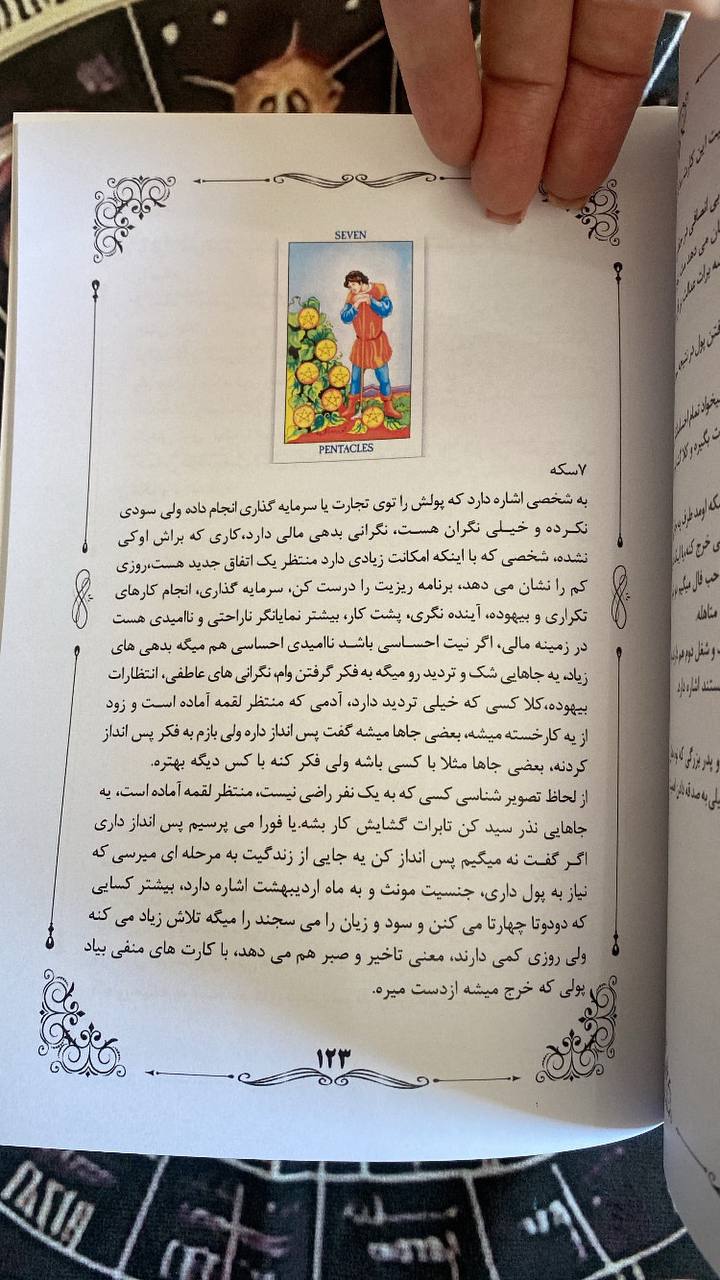 SEVEN
PENTACLES
۷سکه
به شخصی اشاره دارد که پولش را توی تجارت یا سرمایه گذاری انجام داده ولی سودی
نکرده و خیلی نگران هست، نگرانی بدهی مالی دارد،کاری که براش اوکی
نشده، شخصی که با اینکه امکانت زیادی دارد منتظر یک اتفاق جدید هست،روزی
کم را نشان می دهد، برنامه ریزیت را درست کن، سرمایه گذاری، انجام کارهای
تکراری و بیهوده، آینده نگری، پشت کار، بیشتر نمایانگر ناراحتی و ناامیدی هست
در زمینه مالی، اگر نیت احساسی باشد ناامیدی احساسی هم میگه بدهی های
زیاد، یه جاهایی شک و تردید رو میگه به فکر گرفتن وام، نگرانی های عاطفی، انتظارات
بیهوده،کلا کسی که خیلی تردید دارد، آدمی که منتظر لقمه آماده است و زود
از یه کارخسته میشه، بعضی جاها میشه گفت پس انداز داره ولی بازم به فکر پس انداز
کردنه، بعضی جاها مثلا با کسی باشه ولی فکر کنه با کس دیگه بهتره.
از لحاظ تصویر شناسی کسی که به یک نفر راضی نیست، منتظر لقمه آماده است، یه
جاهایی نذر سید کن تابرات گشایش کار بشه.یا فورا می پرسیم پس انداز داری
اگر گفت نه میگیم پس انداز کن یه جایی از زندگیت به مرحله ای میرسی که
نیاز به پول داری، جنسیت مونث و به ماه اردیبهشت اشاره دارد، بیشتر کسایی
که دودوتا چهارتا می کنن و سود و زیان را می سجند را میگه تلاش زیاد می کنه
ولی روزی کمی دارند، معنی تاخیر و صبر هم می دهد، با کارت های منفی بیاد
پولی که خرج میشه ازدست میره.
۱۲۳